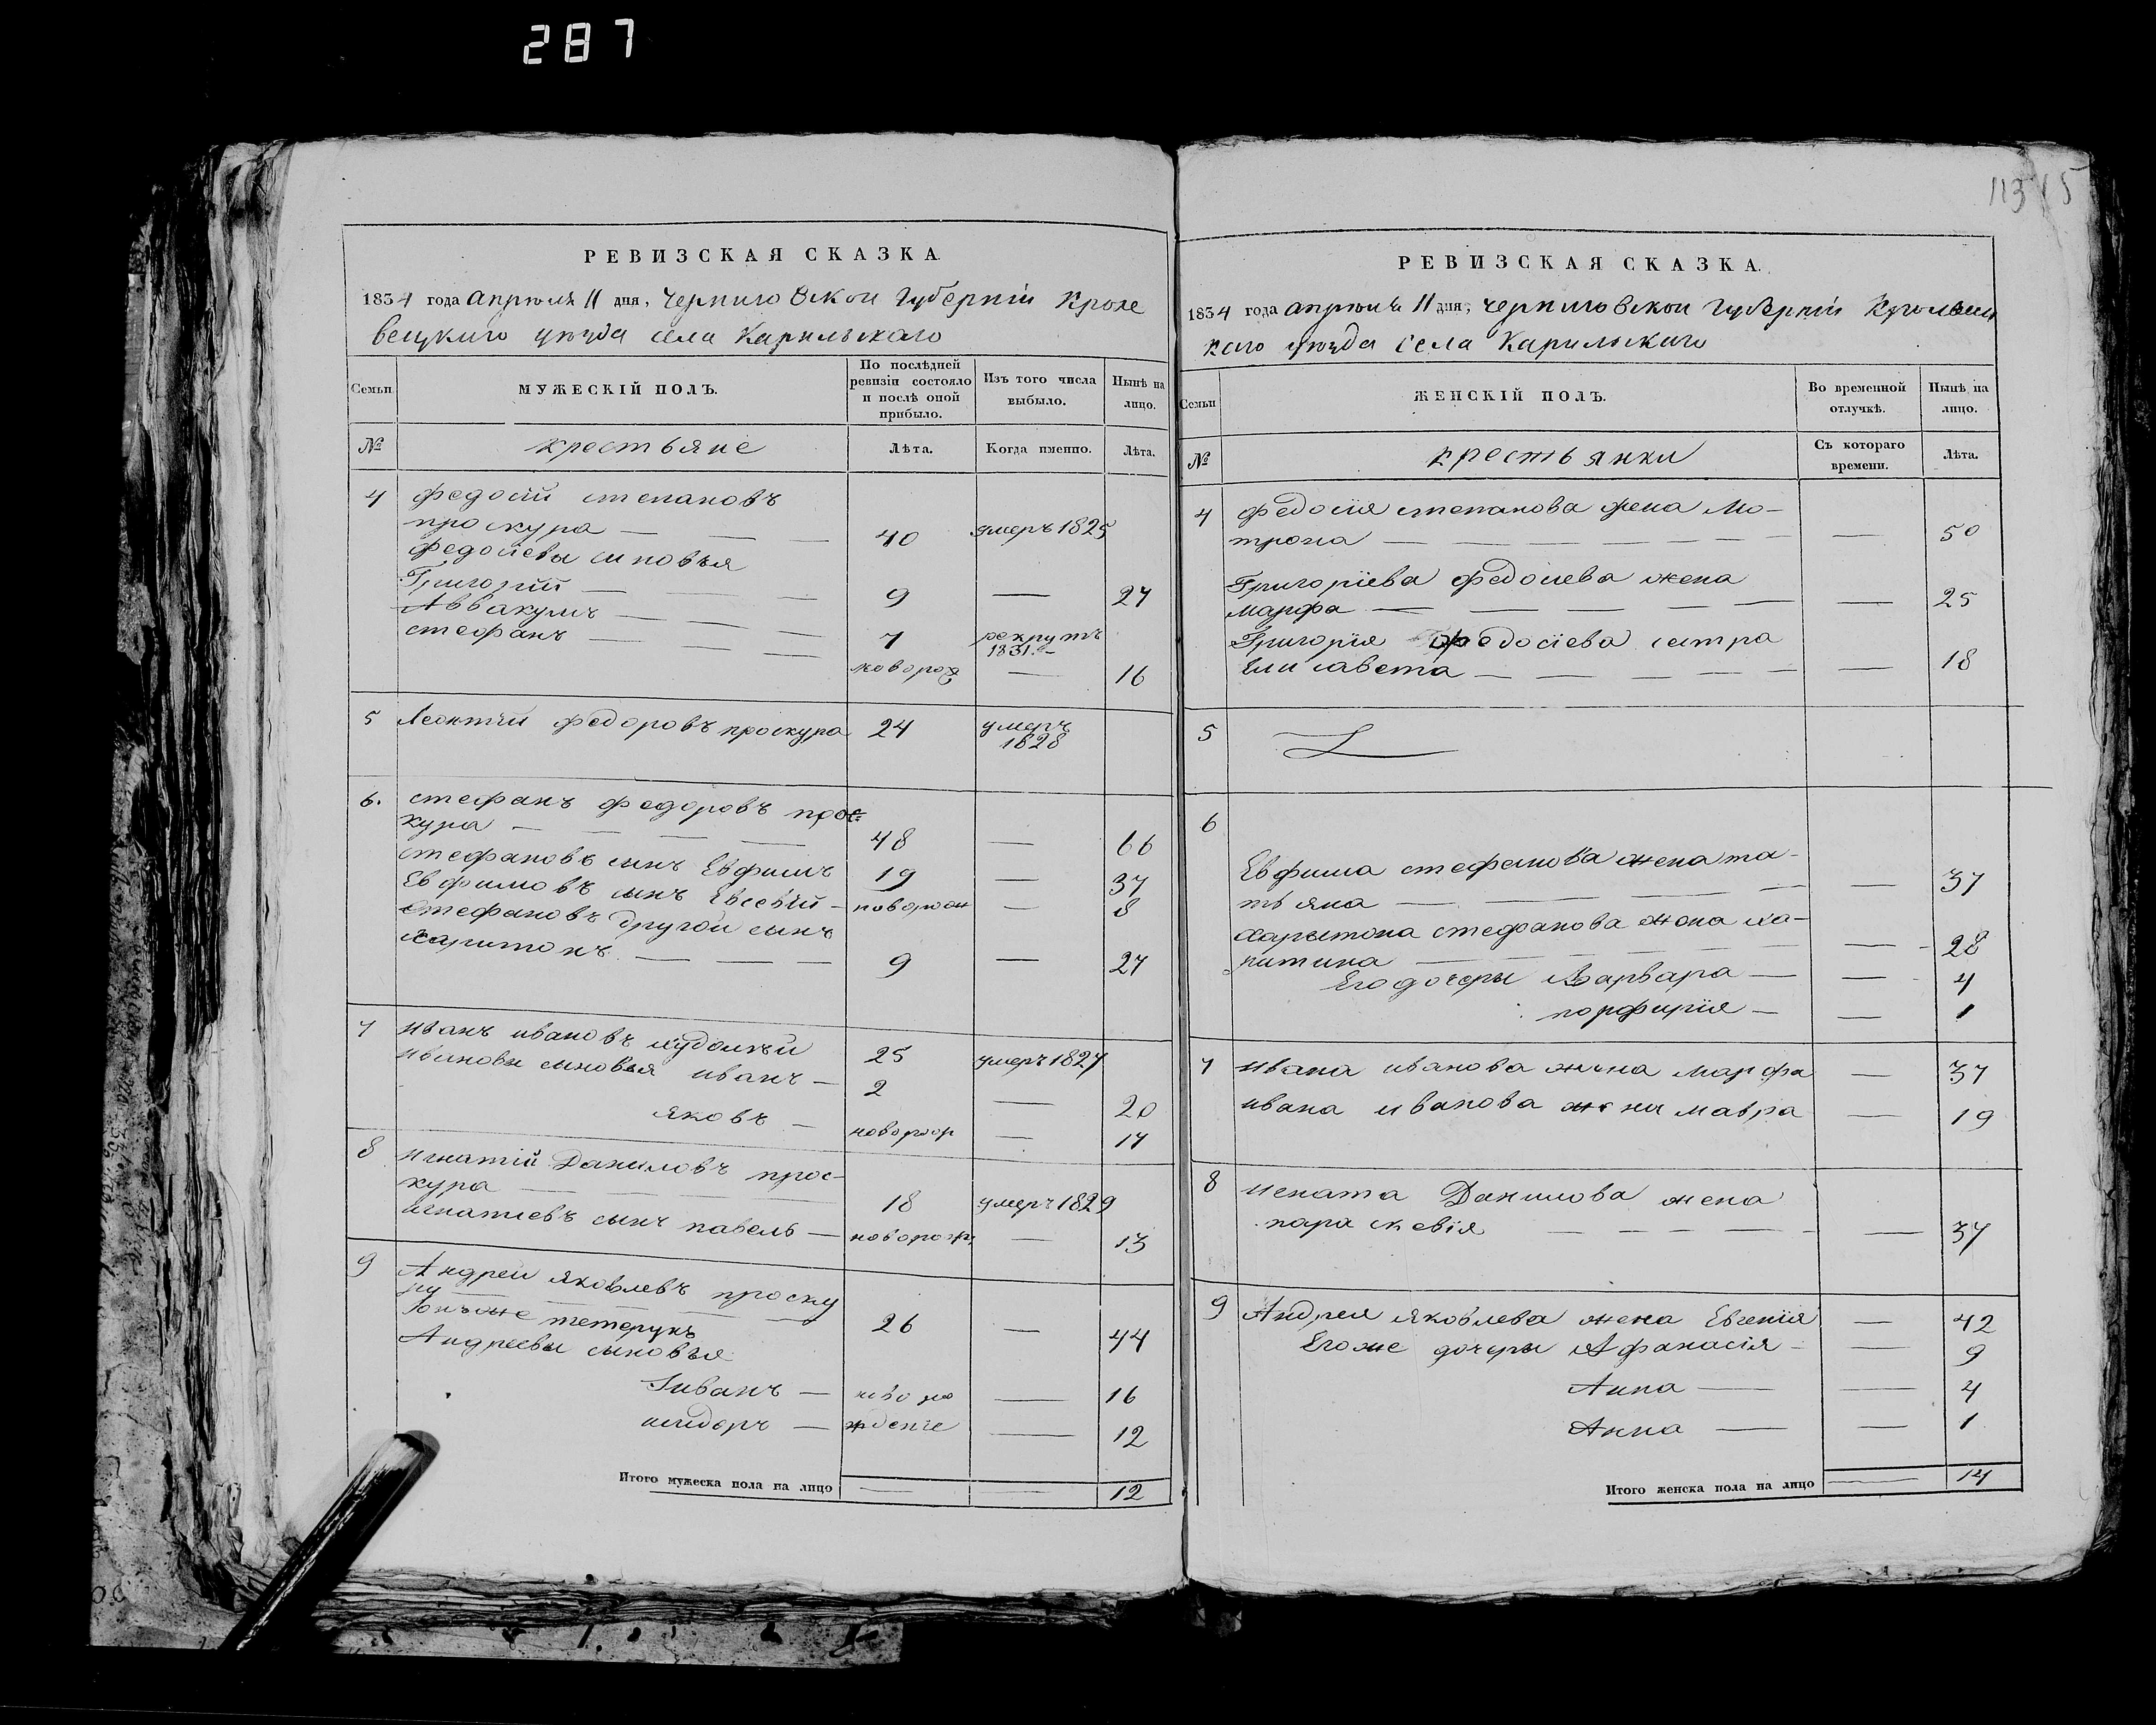 287
113 15
РЕВИЗСКАЯ СКАЗКА.
1834 года апреля 11 дня, Черниговской губерніи Кроле
вецкого уезда села Карильскаго
Семьи
МУЖЕСКІЙ ПОЛЪ.
По послѣдней ревизіи состояло и послѣ оной прибыло.
Изъ того числа выбыло.
Нынѣ на лицо.
№
крестьяне
Лѣта.
Когда именно.
Лѣта.
4 федосій степановъ
проскура — 40 умеръ 1825
федосіевы сыновья
Григорій — 9 — 27
Аввакумъ — 7 рекрутъ 1831 —
стефанъ — новорож — 16
5 Леонтій федоровъ проскура 24 умеръ 1828
6. стефанъ федоровъ прос-
кура — 48 — 66
стефановъ сынъ Евфимъ 19 — 37
Евфимовъ сынъ Евсевій — новорож — 8
стефановъ другой сынъ
Харитонъ — 9 — 27
7 иванъ ивановъ 25 умеръ 1827
ивановы сыновья иванъ — 2 — 20
яковъ — новорож — 17
8 игнатій Даниловъ прос-
кура — 18 умеръ 1829
игнатіевъ сынъ павелъ — новорож — 13
9 Андрей яковлевъ проску
ра — 26 — 44
онъ же тетерукъ
Андреевы сыновья
Іиванъ — новоро — 16
сидоръ — жденіе — 12
Итого мужеска пола на лицо — — 12
РЕВИЗСКАЯ СКАЗКА.
1834 года апреля 11 дня, черниговской губерніи Кролевец
каго уезда села Карильскаго
Семьи
ЖЕНСКІЙ ПОЛЪ.
Во временной отлучкѣ.
Нынѣ на лицо.
№
крестьянки
Съ котораго времени.
Лѣта.
4 федосія степанова жена Мо-
трона — — 50
Григоріева федосіева жена
марфа — — 25
Григорія федосіева сестра
Елисавета — — 18
5
6
Евфима стефанова жена та-
тьяна — — 37
Харытона стефанова жена ха-
ритина — — 28
Его дочеры Варвара — — 4
порфирія — — 1
7 ивана иванова жена марфа — 37
ивана иванова жена мавра — 19
8 игната Данилова жена
параскевія — — 37
9 Андрея яковлева жена Евгенія — 42
Его же дочеры Афанасія — — 9
Анна — — 4
Анна — — 1
Итого женска пола на лицо — 14